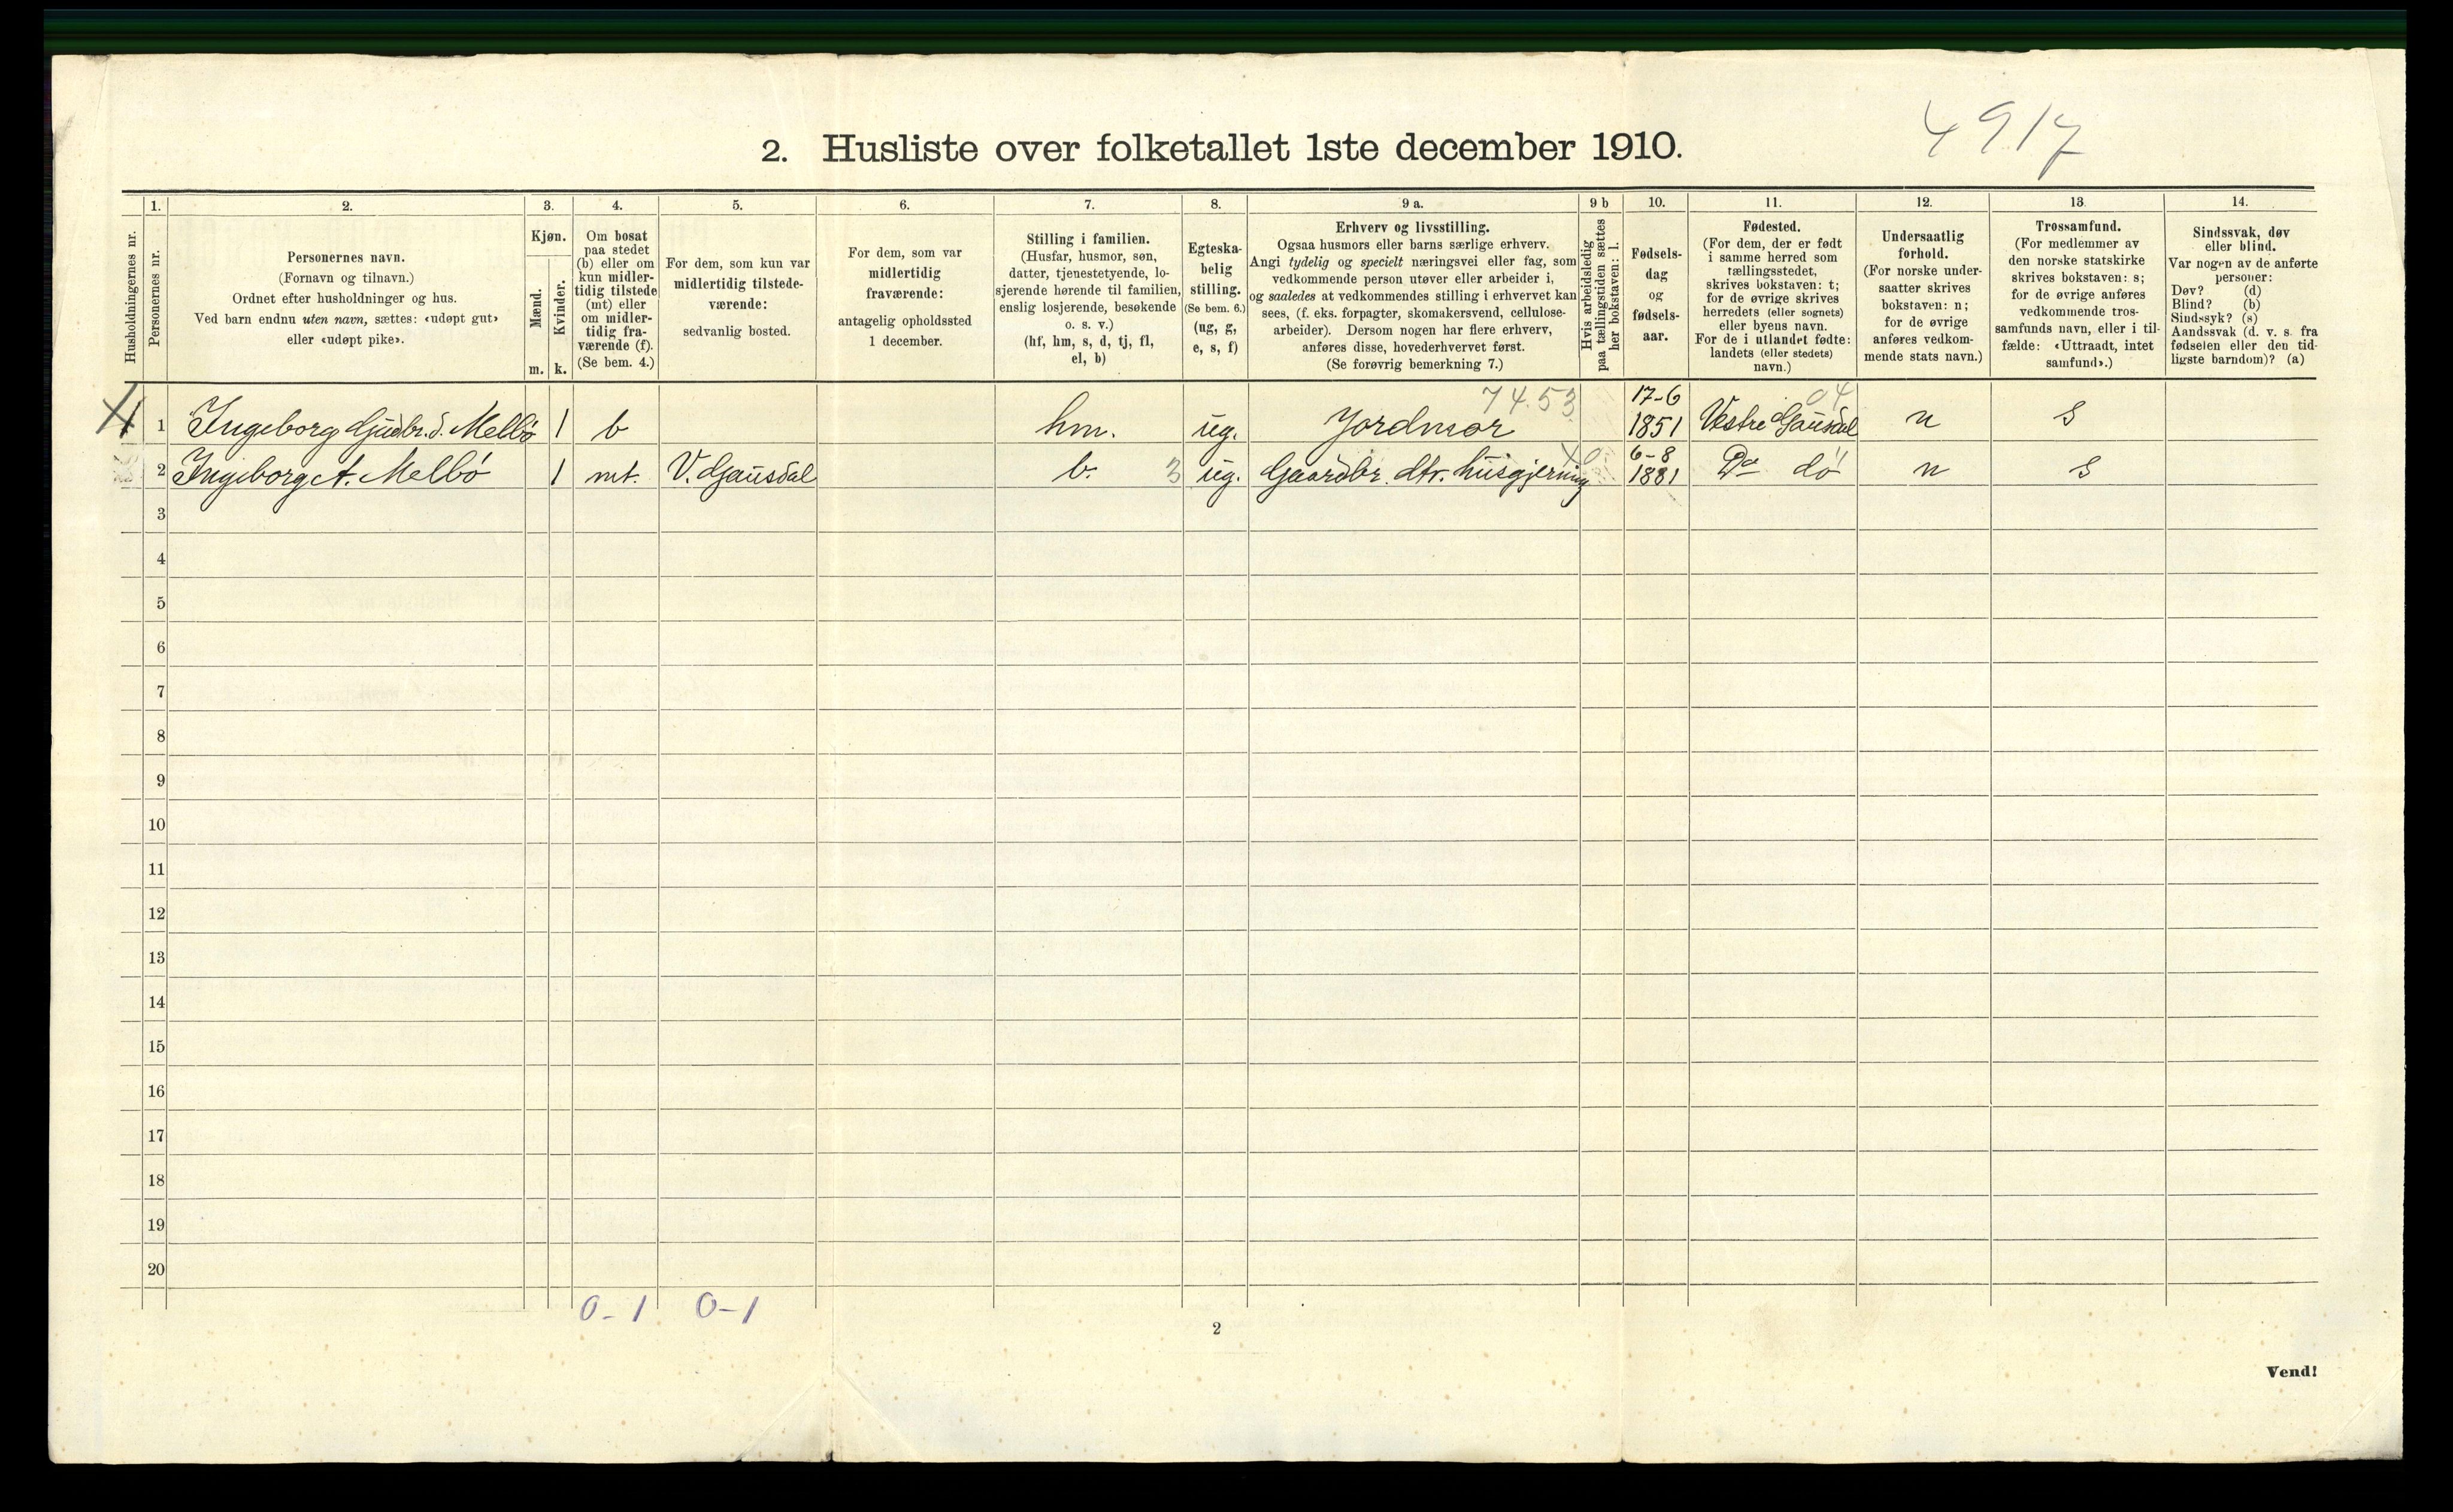 4917
2. Husliste over folketallet 1ste december 1910.
Husholdningernes nr.
1.
Personernes nr.
2.
Personernes navn.
(Fornavn og tilnavn.)
Ordnet efter husholdninger og hus.
Ved barn endnu uten navn, sættes: «udøpt gut»
eller «udøpt pike».
3.
Kjøn.
Mænd.
Kvinder.
m. k.
4.
Om bosat
paa stedet
(b) eller om
kun midler-
tidig tilstede
(mt) eller
om midler-
tidig fra-
værende (f).
(Se bem. 4.)
5.
For dem, som kun var
midlertidig tilstede-
værende:
sedvanlig bosted.
6.
For dem, som var
midlertidig
fraværende:
antagelig opholdssted
1 december.
7.
Stilling i familien.
(Husfar, husmor, søn,
datter, tjenestetyende, lo-
sjerende hørende til familien,
enslig losjerende, besøkende
o. s. v.)
(hf, hm, s, d, tj, fl,
el, b)
8.
Egteska-
belig
stilling.
(Se bem. 6.)
(ug, g,
e, s, f)
9 a.
Erhverv og livsstilling.
Ogsaa husmors eller barns særlige erhverv.
Angi tydelig og specielt næringsvei eller fag, som
vedkommende person utøver eller arbeider i,
og saaledes at vedkommendes stilling i erhvervet kan
sees, (f. eks. forpagter, skomakersvend, cellulose-
arbeider). Dersom nogen har flere erhverv,
anføres disse, hovederhvervet først.
(Se forøvrig bemerkning 7.)
9 b
Hvis arbeidsledig
paa tællingstiden sættes
her bokstaven: l.
10.
Fødsels-
dag
og
fødsels-
aar.
11.
Fødested.
(For dem, der er født
i samme herred som
tællingsstedet,
skrives bokstaven: t;
for de øvrige skrives
herredets (eller sognets)
eller byens navn.
For de i utlandet fødte:
landets (eller stedets)
navn.)
12.
Undersaatlig
forhold.
(For norske under-
saatter skrives
bokstaven: n;
for de øvrige
anføres vedkom-
mende stats navn.)
13
Trossamfund.
(For medlemmer av
den norske statskirke
skrives bokstaven: s;
for de øvrige anføres
vedkommende tros-
samfunds navn, eller i til-
fælde: «Uttraadt, intet
samfund».)
14.
Sindssvak, døv
eller blind.
Var nogen av de anførte
personer:
Døv? (d)
Blind? (b)
Sindssyk? (s)
Aandssvak (d. v. s. fra
fødselen eller den tid-
ligste barndom)? (a)
74.53 17-6 04
1 1 Ingeborg Gudbr.d. Melbö 1 b hm. ug. Jordmor 1851 Vestre Gausdal n s
6-8
2 Ingeborg A. Melbö 1 mt. V. Gausdal b. 3 ug. Gaardbr. dtr. husgjerning 1881 Do do n s
3
4
5
6
7
8
9
10
11
12
13
14
15
16
17
18
19
20
0-1 0-1
2
Vend!